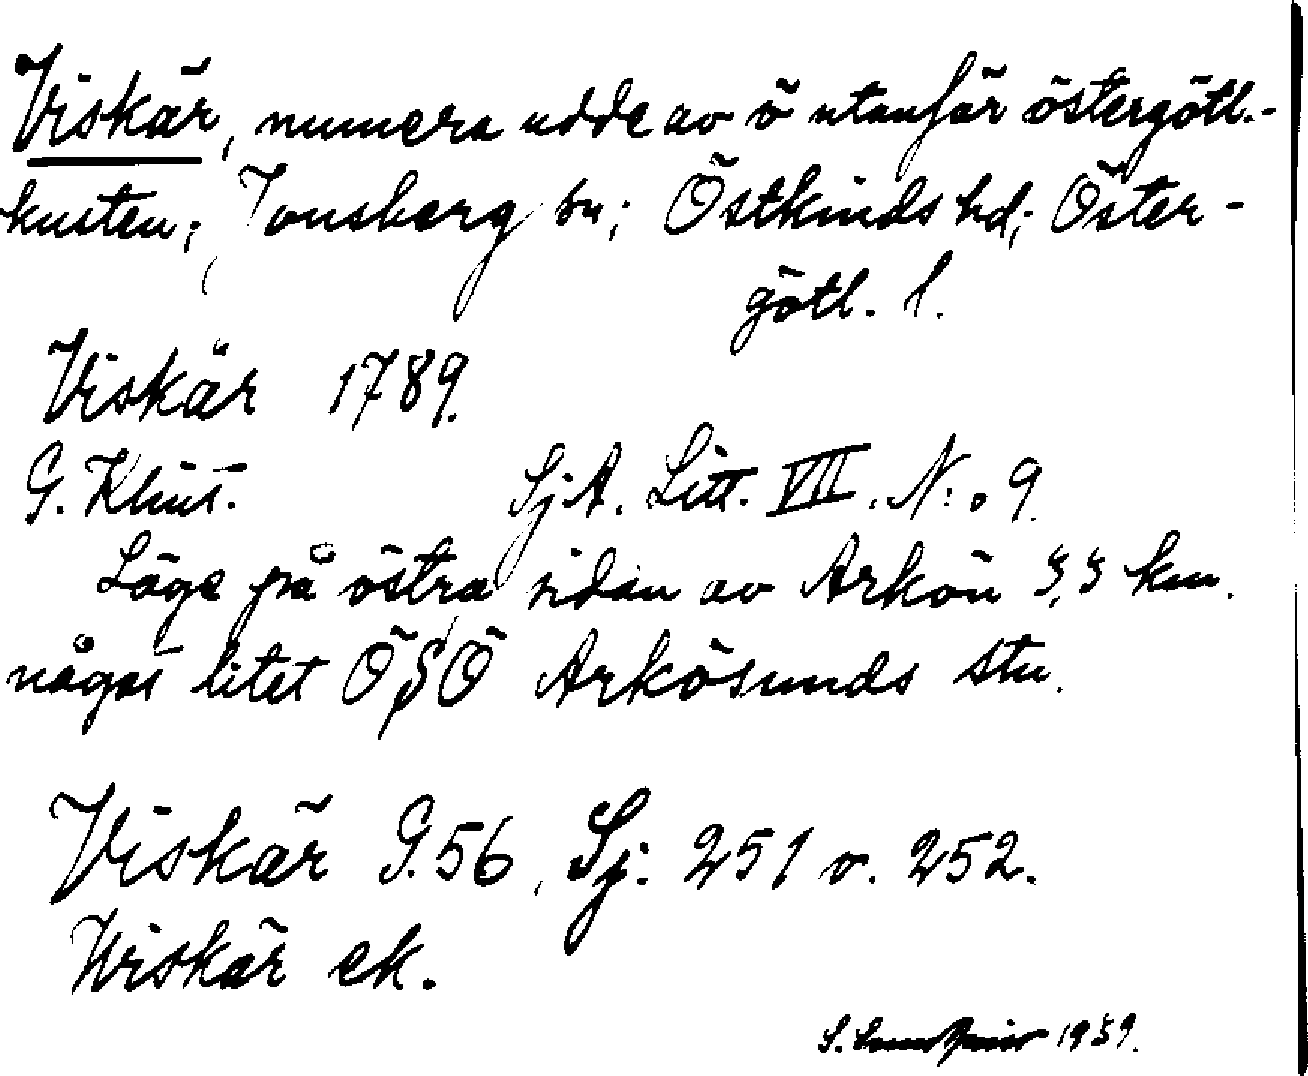 Viskär, numera udde av ö utanför östergötl.-
kusten; Jonsberg sn; Östkinds hd; Öster-
götl. l.
Viskär 1789.
G. Klint. SjA. Litt. VII. N:o 9.
Läge på östra sidan av Arkön 3,5 km.
något litet ÖSÖ Arkösunds stn.
Viskär G.56, Sj. 251 v. 252.
Wiskär ek.
S. 1959.